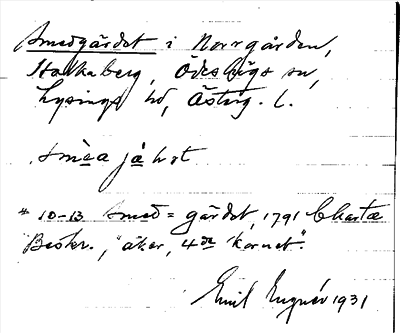 Smedgärdet i Norrgården,
Stavaberg, Ödeshögs sn,
Lysings hd, Östrg. l.
smèa jàlvet
# 10-13 Smed=gärdet, 1791 Charta
Beskr., "åker, 4de kornet".
Emil 1931